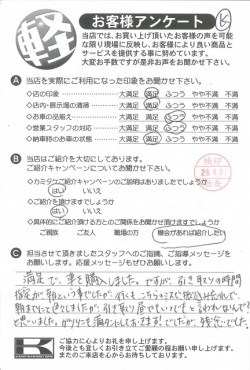 軽
お客様アンケート
当店では、お買い上げ頂いたお客様の声を可能
な限り現場に反映し、お客様により良い商品と
サービスを提供する事に努めています。
大変お手数ですが是非お声をお聞かせ下さい。
A 当店を実際にご利用になった印象をお聞かせ下さい。
◇店の印象 大満足 満足 ふつう やや不満 不満
◇店内・展示場の清掃 大満足 満足 ふつう やや不満 不満
◇お車の品揃え 大満足 満足 ふつう やや不満 不満
◇営業スタッフの対応 大満足 満足 ふつう やや不満 不満
◇納車時のお車の状態 大満足 満足 ふつう やや不満 不満
B 当店はご紹介を大切にしております。
ご紹介キャンペーンについてお聞かせ下さい。
◇カミタケご紹介キャンペーンのご説明はありましたでしょうか
はい いいえ
◇ご紹介を頂けますでしょうか
はい いいえ
◇具体的にご紹介頂ける方とのご関係をお聞かせ頂けますでしょうか
ご親族 ご友人 職場の方 機会があれば紹介したい
検印
C 担当させて頂きましたスタッフへのご指摘、ご指導メッセージを
お願いします。応援メッセージもぜひお願いします。
満足で、車を購入しました。ですが、引き取りの時間
指定が朝という事でしたが、
思いました。ガソリンを満タンにしておきますでしたが、残念でした。
ご協力に心よりお礼を申し上げます。
今後とも宜しくお引き立てご愛顧の程お願い申し上げます。
またのご来店を心からお待ちしております。